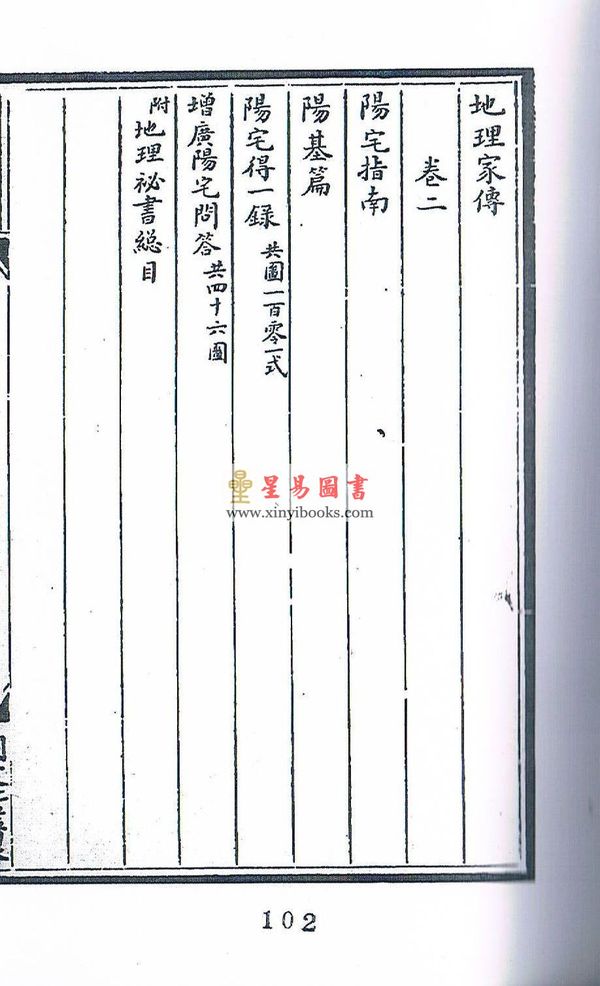 地理家傳
卷二
陽宅指南
陽基篇
陽宅得一錄 共圖一百零一式
增廣陽宅問答 共四十六圖
附 地理祕書總目
星易圖書
www.xinyibooks.com
102